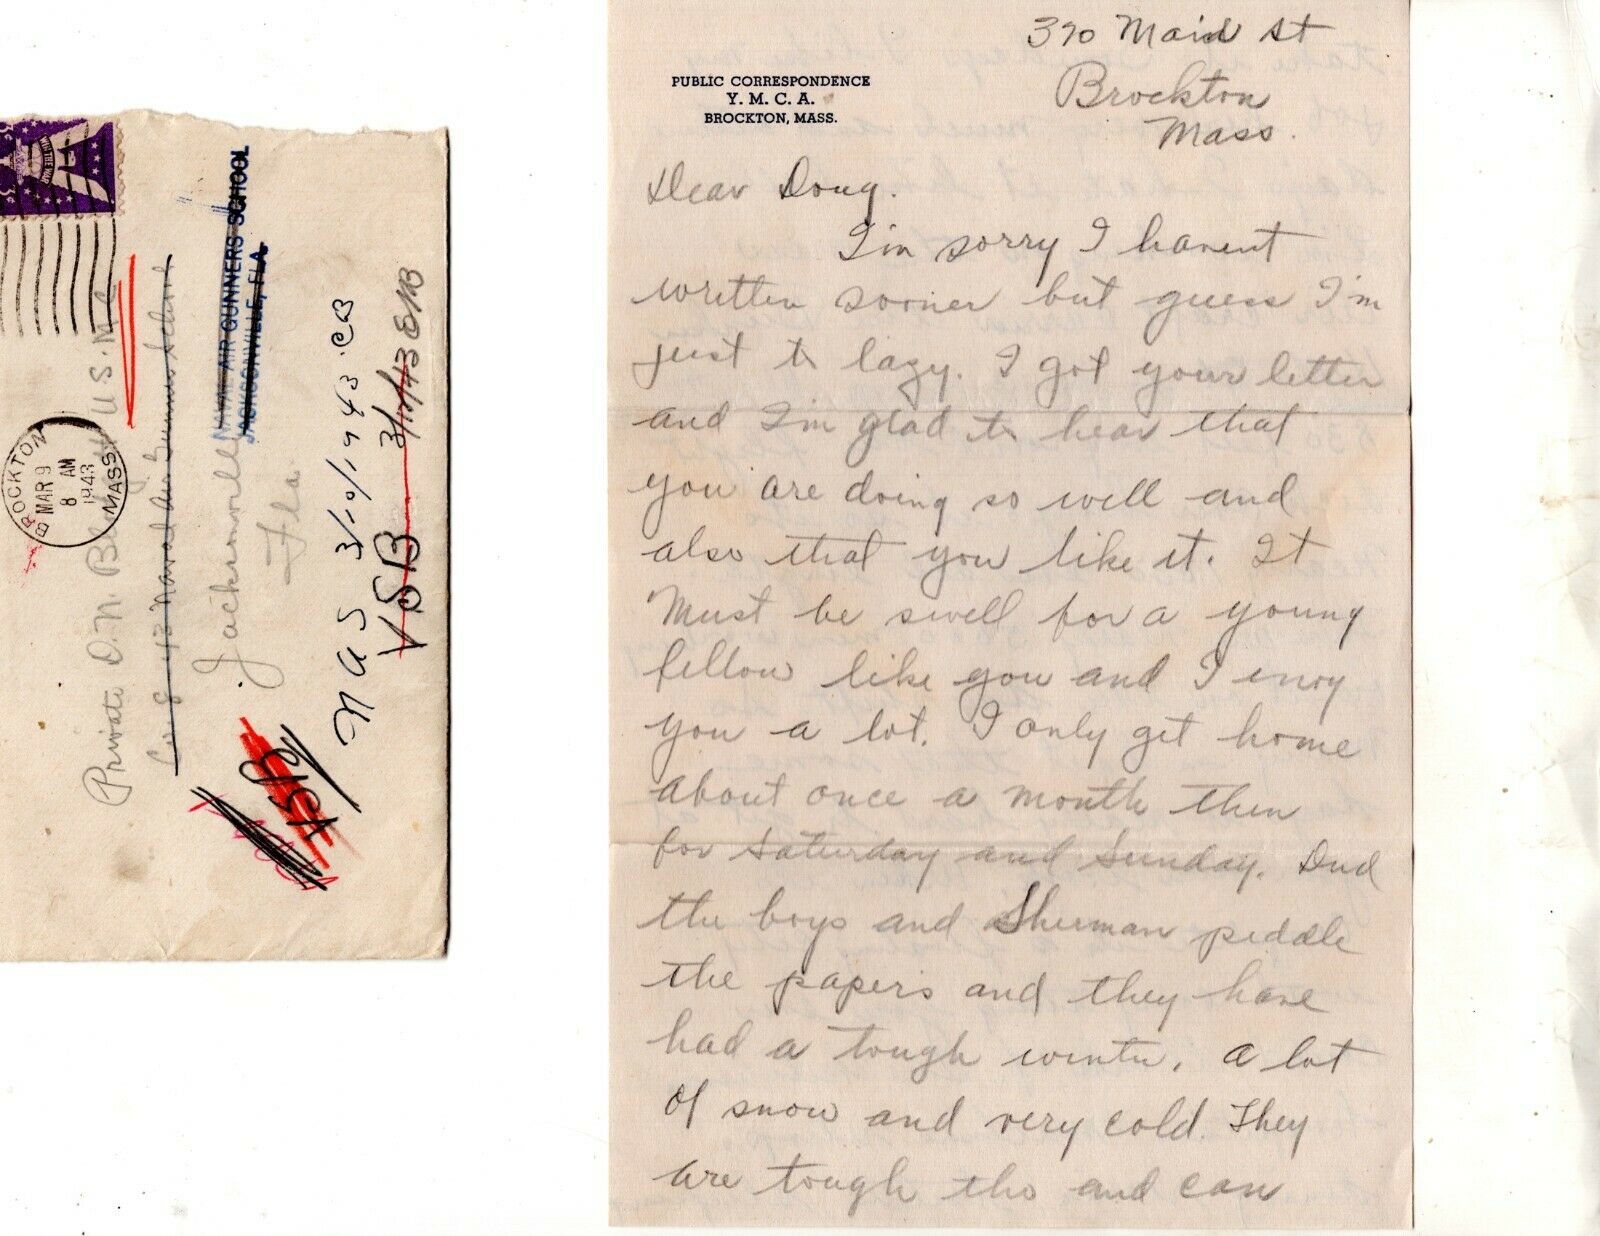 WIN THE WAR
BROCKTON
MAR 9
8 AM
1943
MASS.
Private D. N. U.S.M.C
43 Naval Air Gunners School
Jacksonville
Fla.
NAVAL AIR GUNNERS SCHOOL
JACKSONVILLE, FLA.
NAS 3/10/1943 CB
VSB 3/10/43 ENB
VSB
PUBLIC CORRESPONDENCE
Y. M. C. A.
BROCKTON, MASS.
370 Maid St
Brockton
Mass.
Dear Doug.
I'm sorry I havent
written sooner but guess I'm
just to lazy. I got your letter
and I'm glad to hear that
you are doing so well and
also that you like it. It
Must be swell for a young
fellow like you and I envy
you a lot. I only get home
about once a month then
for Saturday and Sunday. Dud
the boys and Sherman peddle
the papers and they have
had a tough winter. A lot
of snow and very cold. They
are tough tho and can